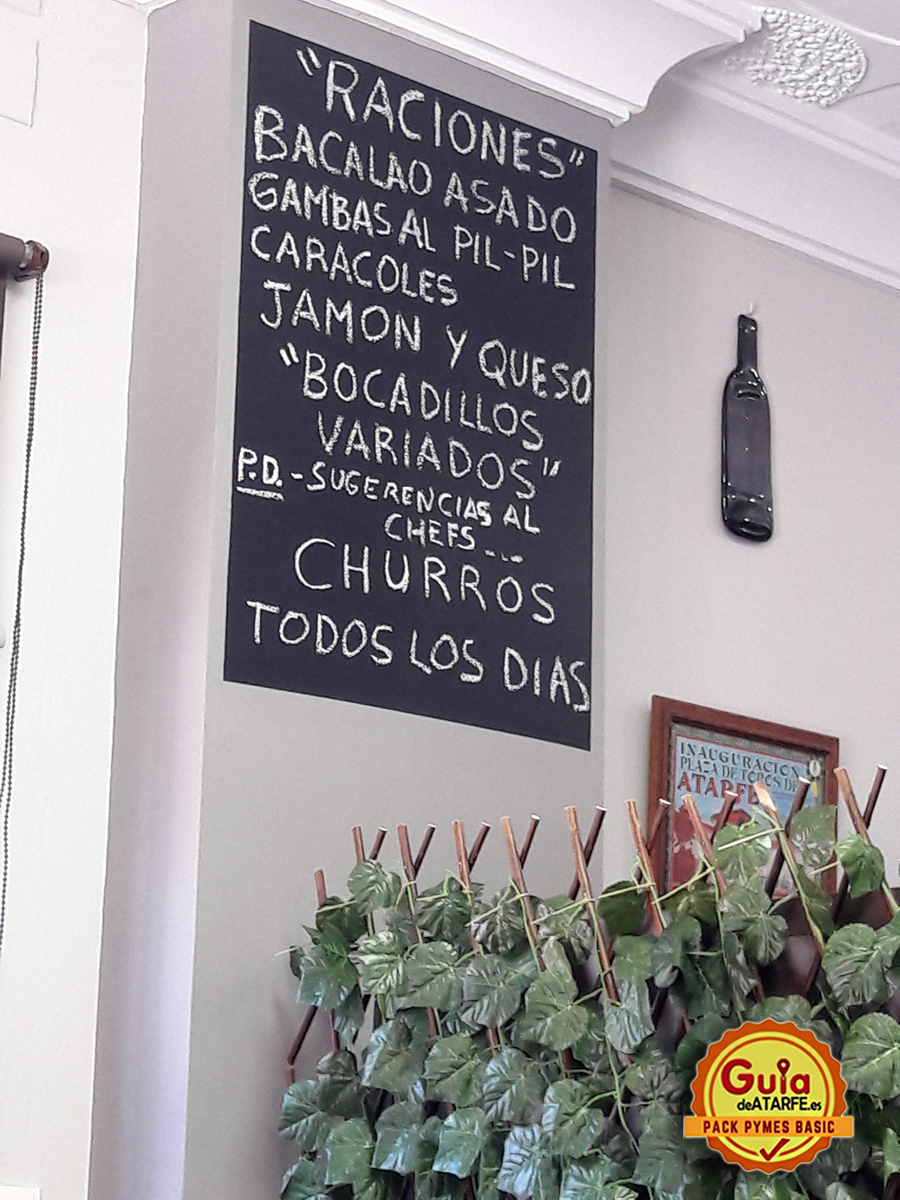 "RACIONES"
BACALAO ASADO
GAMBAS AL PIL-PIL
CARACOLES
JAMON Y QUESO
"BOCADILLOS
VARIADOS"
P.D. - SUGERENCIAS AL
CHEFS...
CHURROS
TODOS LOS DIAS
INAUGURACIÓN
PLAZA DE TOROS DE
ATARFE
Guia
deATARFE.es
PACK PYMES BASIC